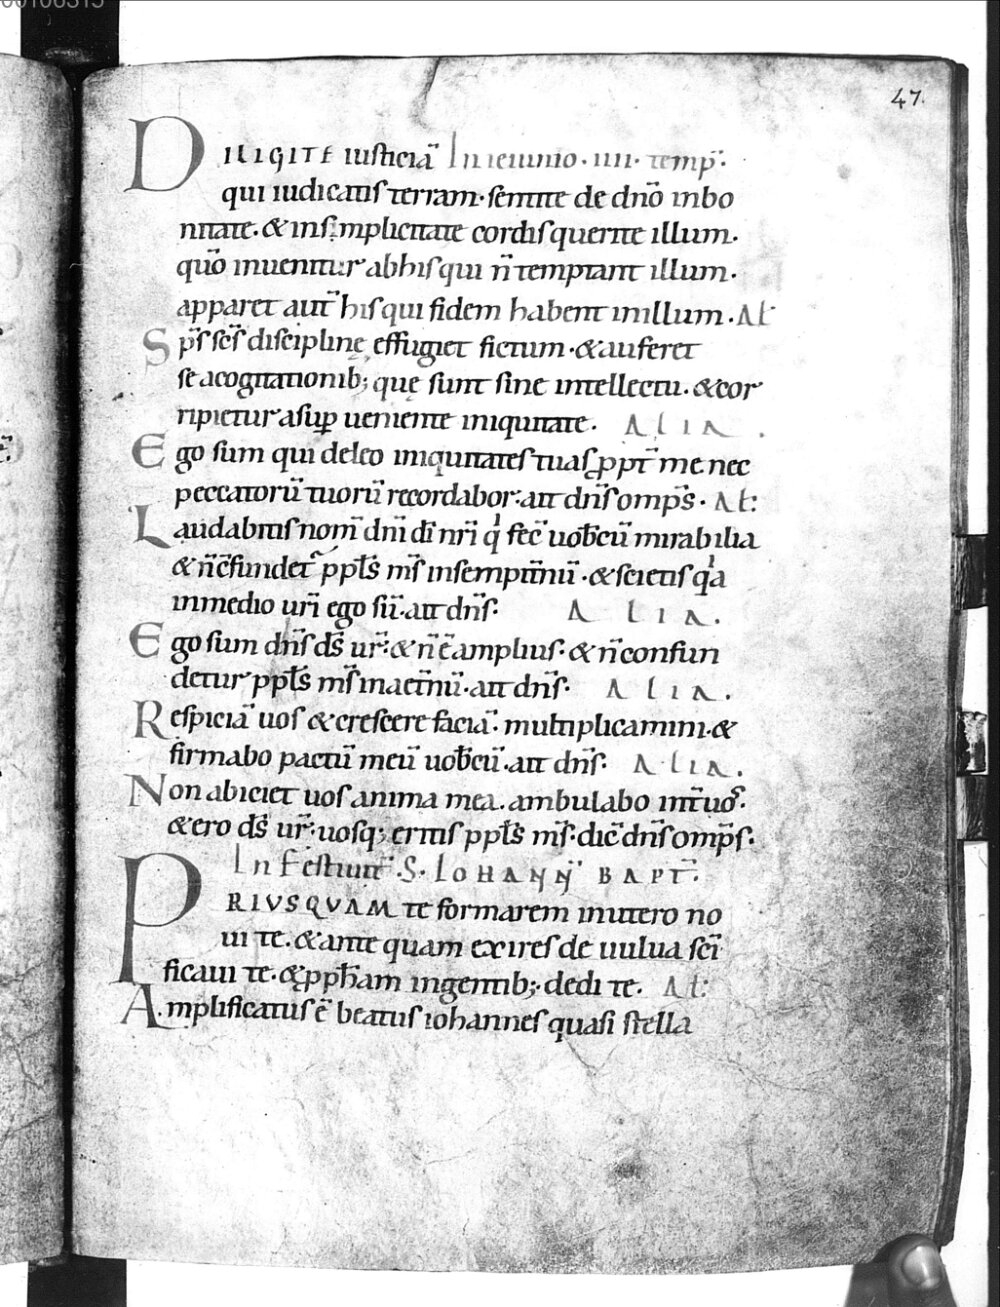 00106315
47.
DILIGITE iusticiā In ieiunio · iiii · temp̄:
qui iudicatis terram · sentite de dn̄o inbo
nitate · & insimplicitate cordis querite illum ·
quō inuenitur abhis qui n̄ temptant illum ·
apparet aut̄ his qui fidem habent inillum · Al̄
Sp̄s sc̄s discipline effugiet fictum · & auferet
se acogitationib; quę sunt sine intellectu · & cor
ripietur asuꝑ ueniente iniquitate . ALIA .
Ego sum qui deleo iniquitates tuas ꝓpt̄ me nec
peccatorū tuorū recordabor · ait dn̄s omp̄s · Al̄:
Laudabitis nom̄ dn̄i dī nr̄i q' fec̄ uob̄cū mirabilia
& n̄ c̄fundet̄ ppl̄s m̄s insempit̄nū · & scietis q'a
inmedio ur̄i ego sū · ait dn̄s · ALIA .
Ego sum dn̄s d̄s ur̄ · & n̄ ē amplius · & n̄ confun
detur ppl̄s m̄s inaet̄nū · ait dn̄s · ALIA .
Respiciā uos & crescere faciā · multiplicamini · &
firmabo pactū meū uob̄cū · ait dn̄s · ALIA .
Non abiciet uos anima mea . ambulabo int̄ uos ·
& ero d̄s ur̄ · uosq; eritis ppl̄s m̄s · dic̄ dn̄s omp̄s ·
In Festiuit̄ · S · IOHANN̄ BAPT̄ .
PRIUSQUAM te formarem inutero no
ui te . & ante quam exires de uulua sc̄i
ficaui te · & ꝓph̄am ingentib; · dedi te . Al̄:
Amplificatus ē beatus iohannes quasi stella